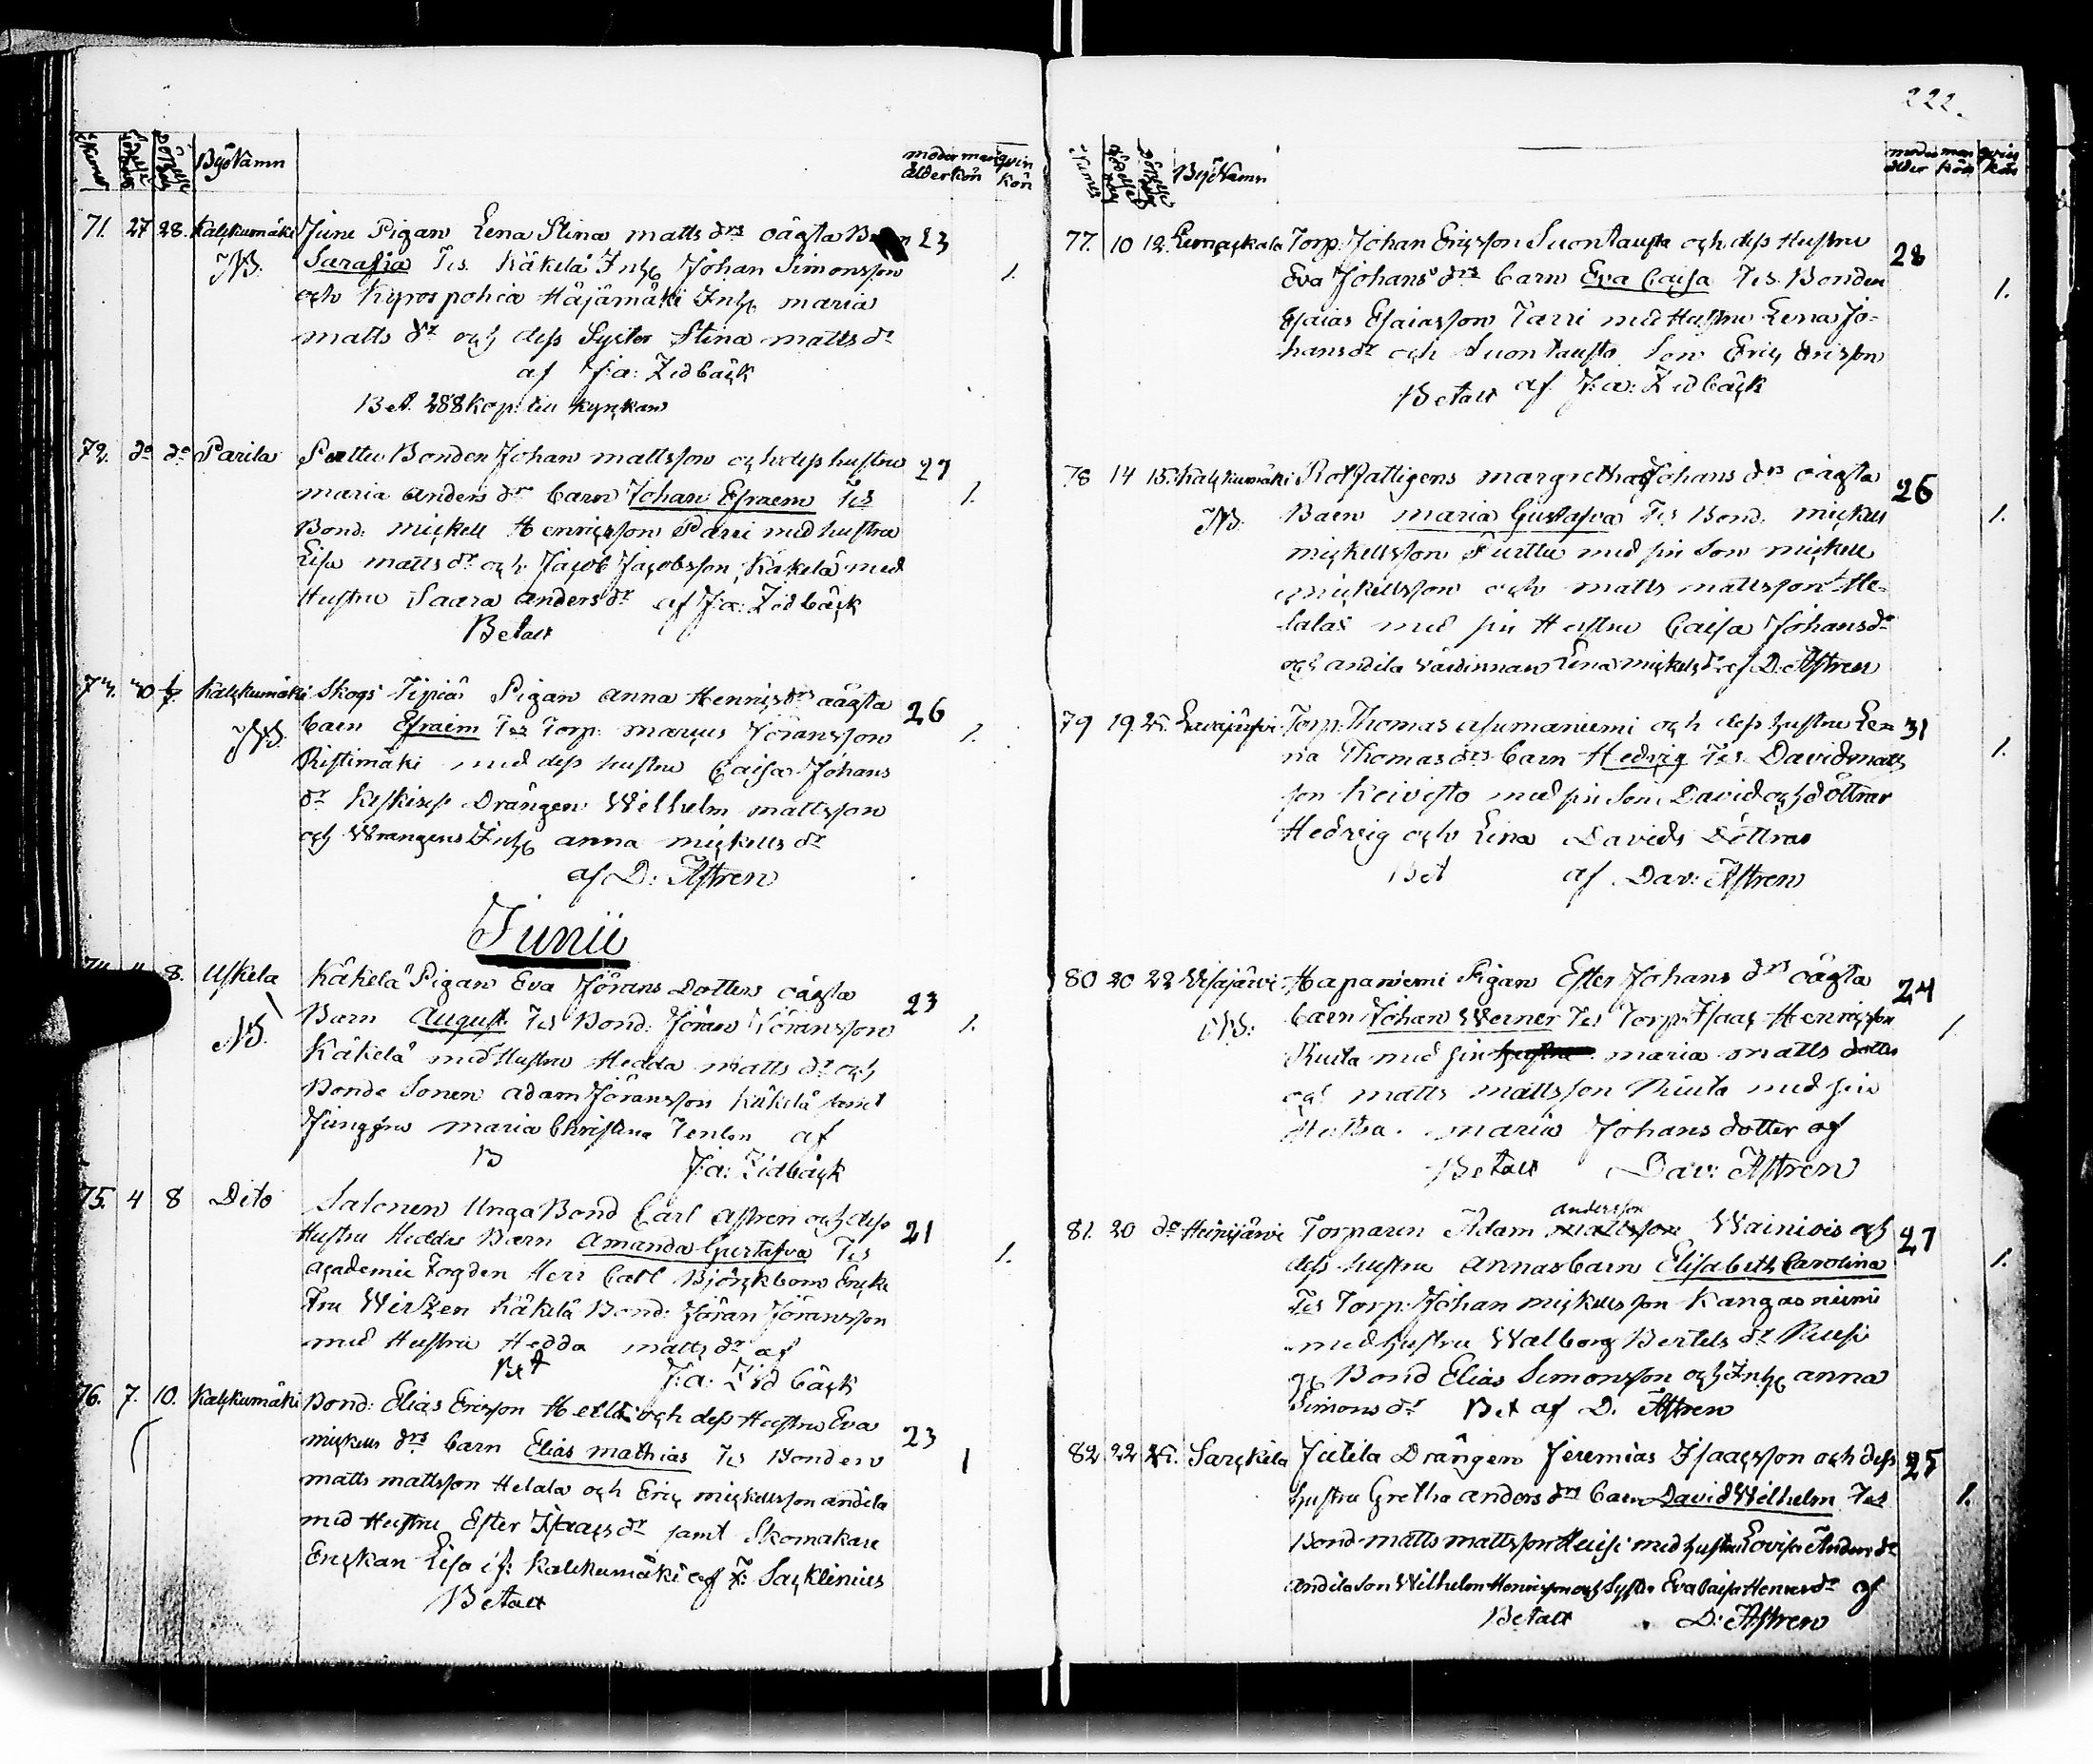 222.
Numer Födelse dag Döpelse dag Byö Namn moder ålder man kön qvin kön
71. 27 28. Kalckumäki Juni Pigan Lena Stina matts drs oägta Barn 23
NB. Serafia Ts. Käkelä Inhs Johan Simonsson 1.
och Kyrospohia Häjämäki Inhs maria
matts dr och dess Syster Stina matts dr
af J:a: Zidbäck
Bet. 288 kop: till kyrckan
72. do do Parila Perttu Bonden Johan mattsson och dess hustru 27
maria anders dr barn Johan Efraem Ts 1.
Bond: mickell Henricsson Parri med hustru
Lisa matts dr och Jacob Jacobsson Käkelä med
Hustru Saara anders dr af J:a: Zidbäck
Betalt
73. 30 Kalckumäki Skogs Pigan anna Henrics drs oägta 26
NB. barn Efraim Ts Torp: marcus Jöransson 1.
Ristimäki med dess hustru Caisa Johans
dr Keskises Drängen Wilhelm mattsson
och Wrangens Inhs anna mickells dr
af D: Astren
Junii
8. Uskela Käkelä Pigan Eva Jörans Dotters oägta 23
NB. Barn August. Ts Bond: Jöran Jöransson 1.
Käkelä med Hustru Hedda matts dr och
Bonde Sonen adam Jöransson Käkelä samt
Jungfru maria Christina Tenlen af
B J:a: Zidbäck
75. 4 8 Dito Salonen Unga Bond Carl Astren och dess
Hustru Heddas Barn Amanda Gustafva Ts 21
academie Fogden Herr Carl Björckbom Encke 1.
Fru Wirzen Käkelä Bond: Jöran Jöransson
med Hustru Hedda matts dr af
Bet J:a: Zidbäck
76. 7. 10. Kalckumäki Bond: Elias Ericsson Helli och dess Hustru Eva
mickells drs barn Elias mathias Ts Bonden 23
matts mattsson Helala och Eric mickellsson andila 1
med Hustru Ester Isaacs dr samt Skomakare
Enckan Lisa if: Kalckumäki af F: Sacklinius
Betalt
Numer Födelse dag Döpelse dag Byö Namn moder ålder man kön qvin kön
77. 10 12. Lempäckala Torp: Johan Ericsson Suontausta och dess Hustru 28
Eva Johans drs barn Eva Caisa Ts. Bonden 1.
Esaias Esaiasson Tarri med Hustru Lena Jo=
hans dr och Suontausto Son Eric Ericsson
Betalt af J:a: Zidbäck
78 14 15. Kalckumäki Rotfattigens margretha Johans drs oägta 26
NB. Barn maria Gustafva Ts Bond. mickell 1.
mickellsson Purttu med sin Son mickell
mickellsson och matts mattsson He=
lala med sin Hustru Caisa Johans dr
och andila värdinnan Lena mickels dr af D. Astren
79 19. 25. Torp: Thomas asumaniemi och dess hustru Le= 31
na Thomas drs barn Hedvig Ts. David matts 1.
son Keivisto med sin Son David och döttrar
Hedvig och Lina Davids Döttrar
Bet af Dav: Astren
80 20 22 Visajärvi Hapaniemi Pigan Ester Johans drs oägta 24
NB: barn Johan Werner Ts Torp: Isaac Henricsson 1.
Riuta med sin hustru maria matts dotter
och matts mattsson Riuta med sin
Hustru. maria Johans dotter af
Betalt Dav: Astren
andersson
81. 20 do Heinijärvi Torparen Adam mattsson Wainiois och 27
dess hustru annas barn Elisabeth Carolina 1.
Ts Torp: Johan mickellsson Kangasniemi
med hustru Walborg Bertels dr Ruusi
Bond Elias Simonsson och Inhs anna
Simons dr Bet af D. Astren
82 22 Sarckila Jutila Drängen Jeremias Isaacsson och dess 25
hustru Gretha anders drs barn David Wilhelm Ts 1.
Bond matts mattsson Heusi med hustru Lovisa Anders dr
andila Son Wilhelm Henricsson och Syster Eva Caisa Henrics dr af
Betalt D: Astren